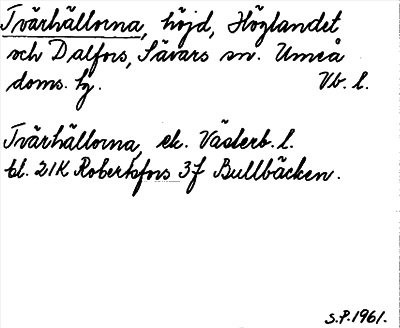 Tvärhällorna, höjd, Höglandet
och Dalfors, Sävars sn. Umeå
doms. hg. Vb. l.
Tvärhällorna, ek. Västerb. l.
bl. 21K Robertsfors 3f Bullbäcken.
S.P. 1961.